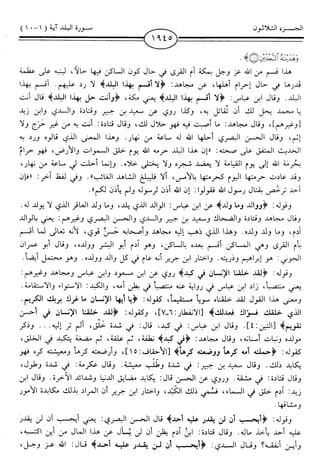 الجـــزء الثلاثـــون
١٩٤٥
سـورة البلد آية (١-١٠)
وَهَدَيْنَاهُ النَّجْدَيْنِ
هذا قسم من الله عز وجل بمكة أم القرى في حال كون الساكن فيها حالاً، لينبه على عظمة
قدرها في حال إحرام أهلها، عن مجاهد: ﴿لا أقسم بهذا البلد﴾ لا رد عليهم. أقسم بهذا
البلد. وقال ابن عباس: ﴿لا أقسم بهذا البلد﴾ يعني مكة، ﴿وأنت حل بهذا البلد﴾ قال أنت
يا محمد يحل لك أن تُقاتل به، وكذا روي عن سعيد بن جبير وقتادة والسدي وابن زيد
[وغيرهم]. وقال مجاهد: ما أصبت فيه فهو حلال لك، وقال قتادة: أنت به من غير حَرَجٍ ولا
إثم، وقال الحسن البصري أحلها الله له ساعة من نهار. وهذا المعنى الذي قالوه ورد به
الحديث المتفق على صحته: «إن هذا البلد حرمه الله يوم خلق السموات والأرض، فهو حرامٌ
بحُرمة الله إلى يوم القيامة لا يعضد شجره ولا يختلى خلاه. وإنما أحلت لي ساعة من نهار،
وقد عادت حرمتها اليوم كحرمتها بالأمس، ألا فليبلغ الشاهد الغائب». وفي لفظ آخر: «فإن
أحد ترخص بقتال رسول الله فقولوا: إن الله أذن لرسوله ولم يأذن لكم».
وقوله: ﴿ووالد وما ولد﴾ عن ابن عباس: الوالد الذي يلد، وما ولد العاقر الذي لا يولد له.
وقال مجاهد وقتادة والضحاك وسعيد بن جبير والسدي والحسن البصري وغيرهم: يعني بالوالد
آدم، وما ولد ولده. وهذا الذي ذهب إليه مجاهد وأصحابه حَسَنٌ قوي، لأنه تعالى لما أقسم
بأم القرى وهي المساكن أقسم بعده بالساكن، وهو آدم أبو البشر وولده، وقال أبو عمران
الجوني: هو إبراهيم وذريته. واختار ابن جرير أنه عام في كل والد وولده. وهو محتمل أيضاً.
وقوله: ﴿لقد خلقنا الإنسان في كبد﴾ روي عن ابن مسعود وابن عباس ومجاهد وغيرهم:
يعني منتصباً، زاد ابن عباس في رواية عنه منتصباً في بطن أمه، والكبد: الاستواء والاستقامة.
ومعنى هذا القول لقد خلقناه سوياً مستقيماً، كقوله: ﴿يا أيها الإنسان ما غرك بربك الكريم.
الذي خلقك فسواك فعدلك﴾ [الانفطار: ٦-٧]، وكقوله: ﴿لقد خلقنا الإنسان في أحسن
تقويم﴾ [التين: ٤]. وقال ابن عباس: في كبد، قال: في شدة خُلق، ألم تر إليه... وذكر
مولده ونبات أسنانه، وقال مجاهد: ﴿في كبد﴾ نطفة، ثم علقة، ثم مضغة يتكبد في الخلق،
كقوله: ﴿حملته أمه كرهاً ووضعته كرهاً﴾ [الأحقاف: ١٥]، وأرضعته كرهاً ومعيشته كره فهو
يكابد ذلك. وقال سعيد بن جبير: في شدة وطَلَب معيشة. وقال عكرمة: في شدة وطول،
وقال قتادة: في مشقة. وروي عن الحسن قال: يكابد مضايق الدنيا وشدائد الآخرة. وقال ابن
زيد: آدم خلق في السماء، فسُمي ذلك الكَبَد، واختار ابن جرير أن المراد بذلك مكابدة الأمور
ومشاقها.
وقوله: ﴿أيحسب أن لن يقدر عليه أحد﴾ قال الحسن البصري: يعني أيحسب أن لن يقدر
عليه أحد يأخذ ماله. وقال قتادة: ابنُ آدم يظن أن لن يُسأل عن هذا المال من أين اكتسبه،
وأيـن أنفقـه؟ وقـال السـدي: ﴿أيحسـب أن لـن يقـدر عليـه أحـد﴾ قـال: الله عـز وجـل،